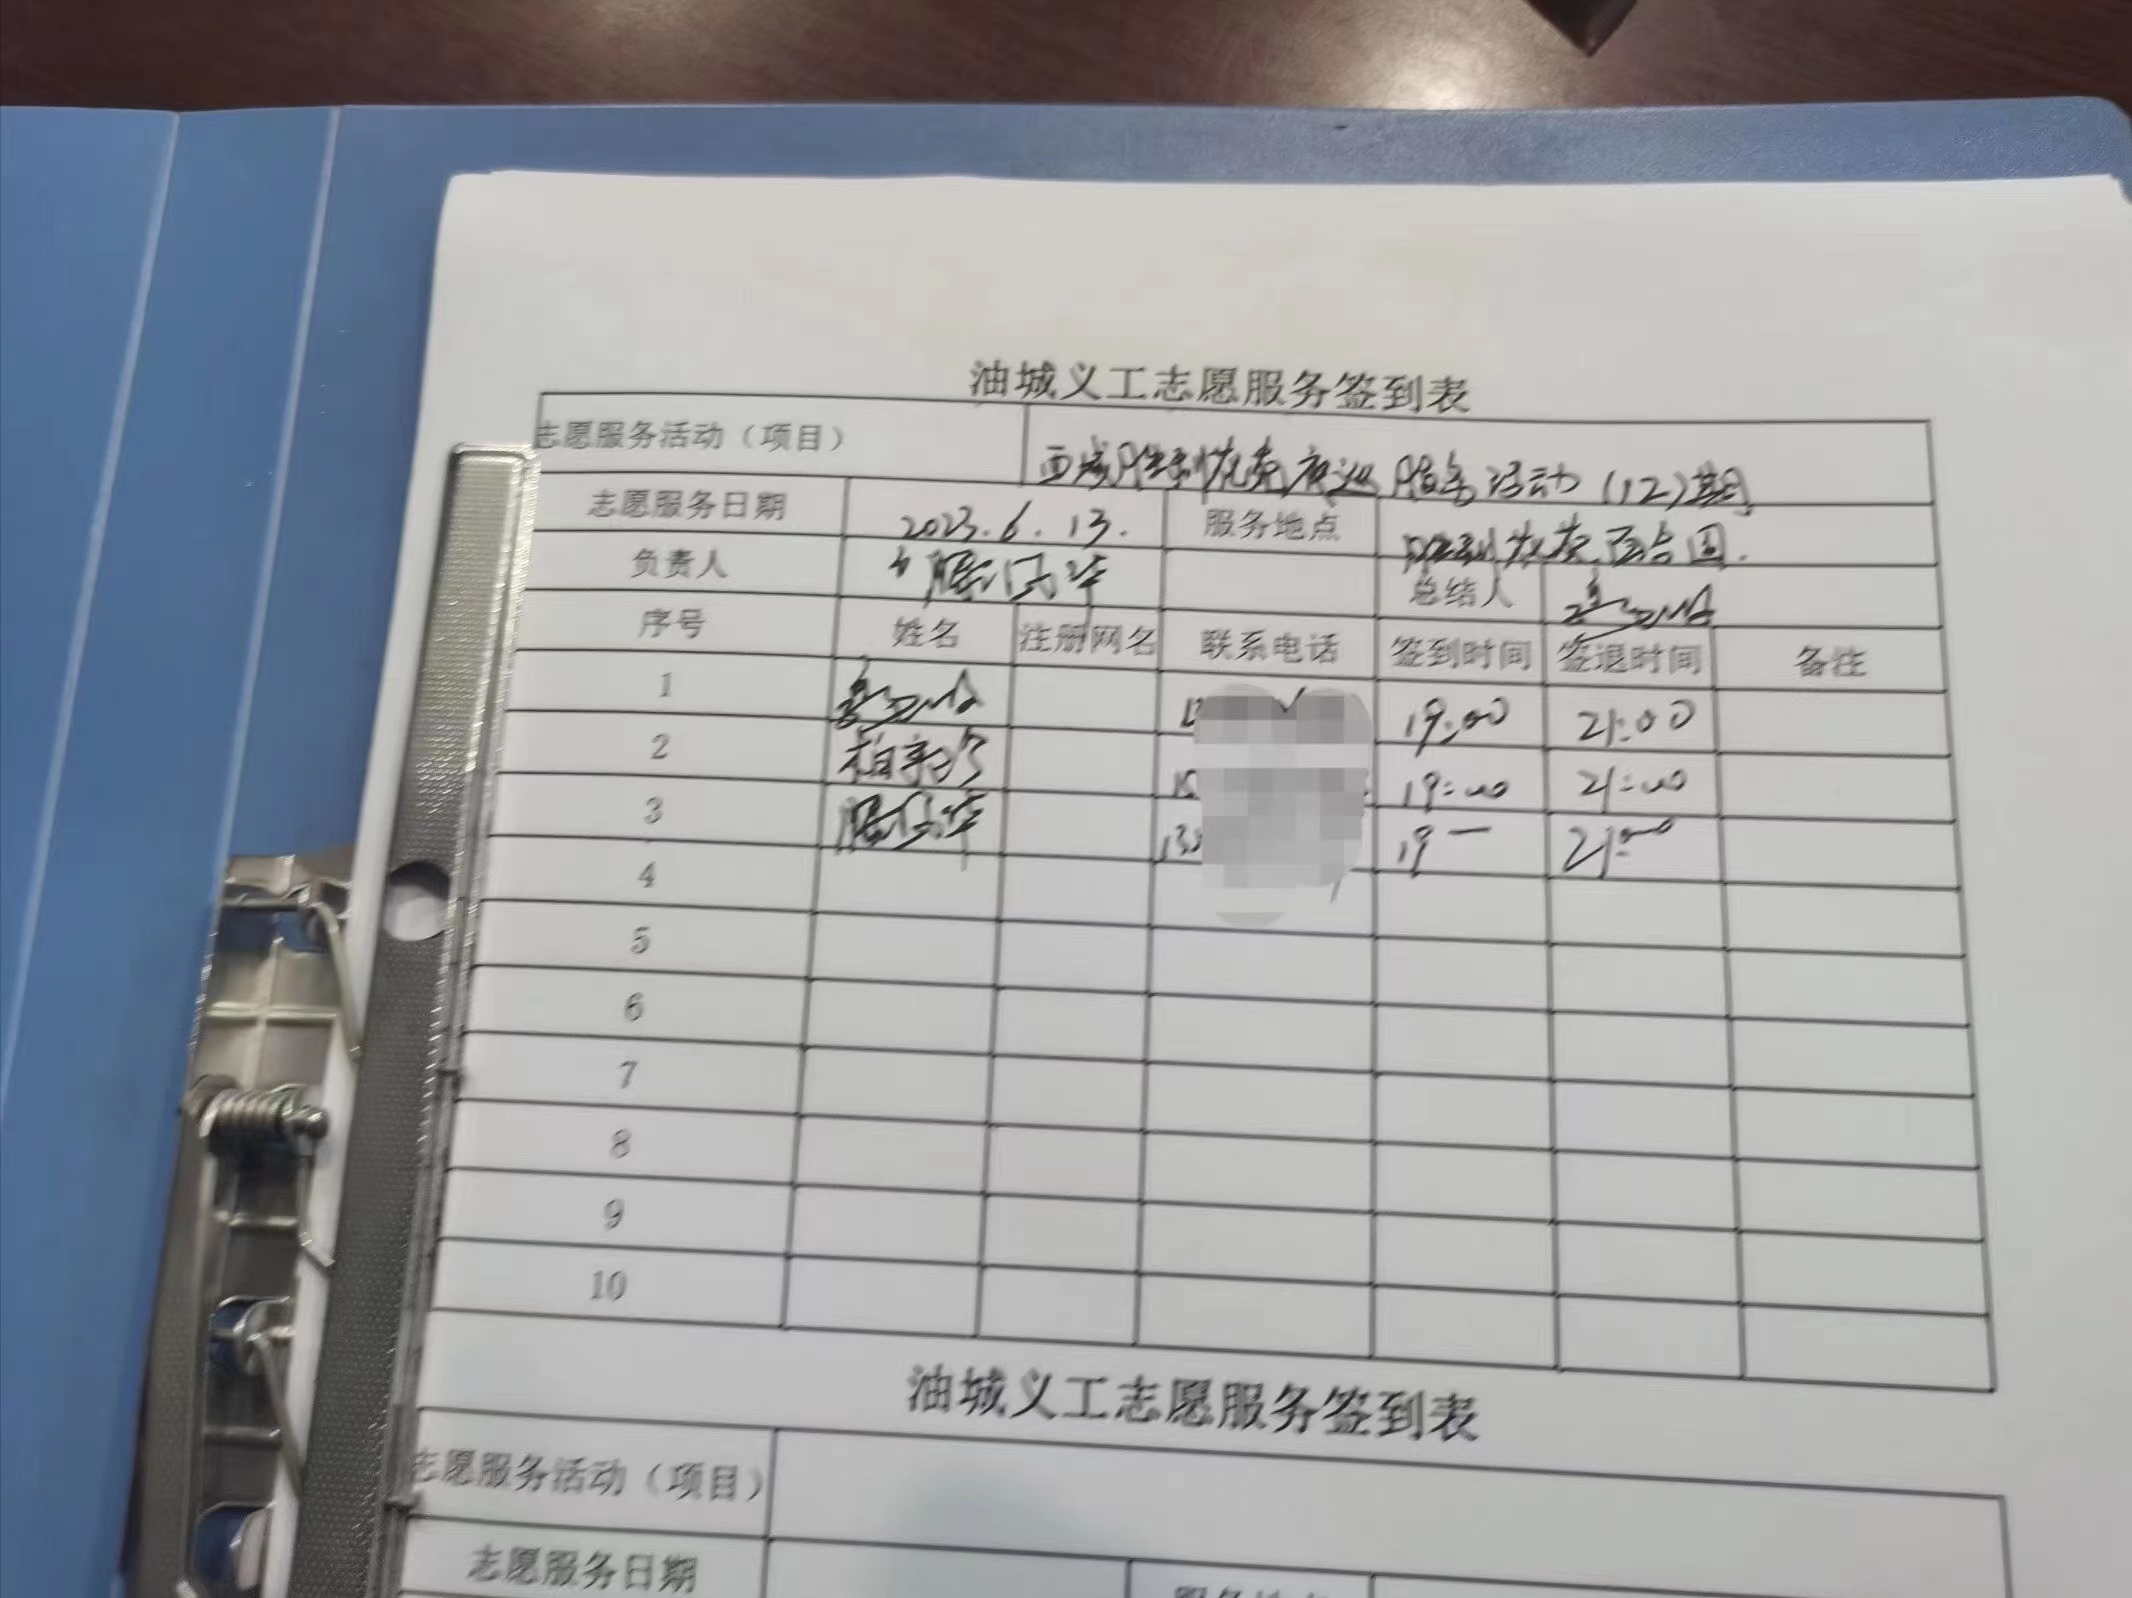 油城义工志愿服务签到表
志愿服务活动（项目） 西城胜利花苑夜巡服务活动（12）期
志愿服务日期 2023.6.13. 服务地点 胜利花苑百合园.
负责人 总结人
序号 姓名 注册网名 联系电话 签到时间 签退时间 备注
1 19:00 21:00
2 19:00 21:00
3 13 19 — 21:00
4
5
6
7
8
9
10
油城义工志愿服务签到表
志愿服务活动（项目）
志愿服务日期